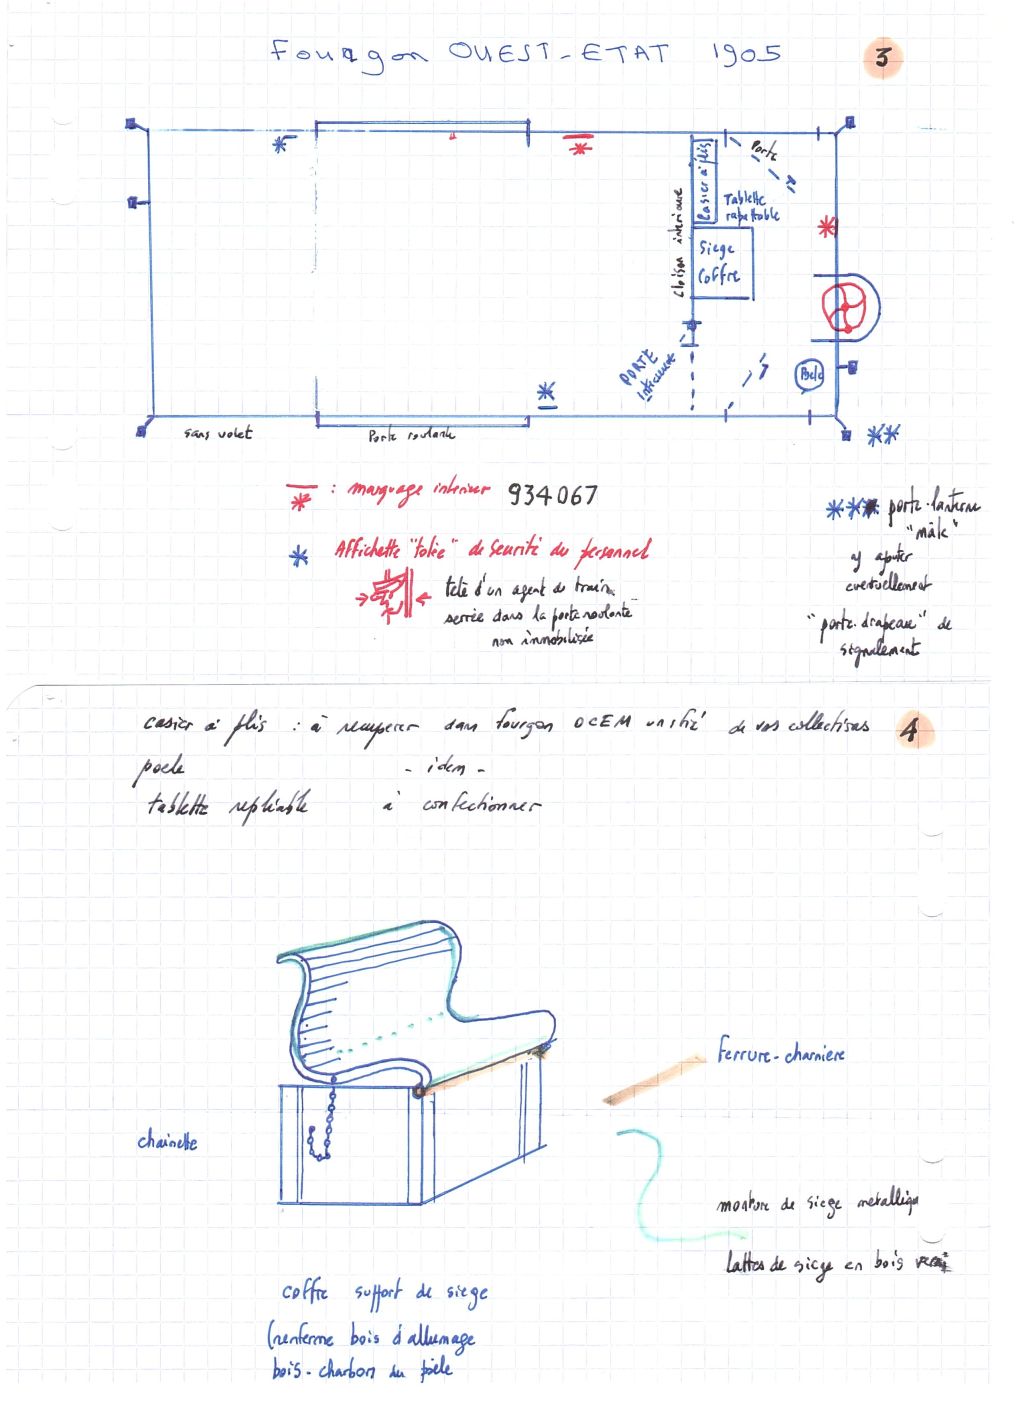 Fourgon OUEST-ETAT 1905
3
Porte
casier à plis
Tablette
rabattable
cloison interieure
Siège
Coffre
PORTE
interieure
Poele
sans volet
Porte roulante
: marquage interieur 934067
Affichette "tolée" de Securité du personnel
tete d'un agent de train
serrée dans la porte roulante
non immobilisée
porte-lanterne
"mâle"
y ajouter
eventuellement
"porte-drapeau" de
signalement
casier à plis : à recuperer dans fourgon OCEM unifié de vos collections
4
poele - idem -
tablette repliable à confectionner
Ferrure-charniere
chainette
monture de siege metalliqu
lattes de siege en bois
coffre support de siege
(renferme bois d'allumage
bois-charbon du poële